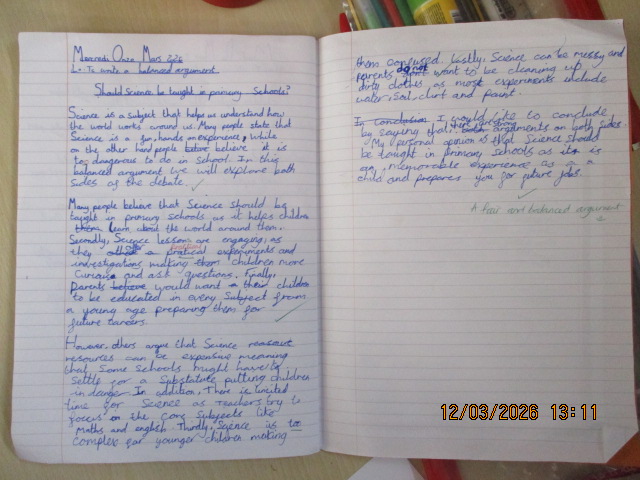 Mercredi Onze Mars 226
L.O. To write a balanced argument
Should Science be taught in primary Schools?
Science is a subject that helps us understand how
the world works around us. Many people state that
Science is a fun, hands on experience, While
on the other hand people believe it is
too dangerous to do in School. In this
balanced argument we will explore both
Sides of the debate.
Many people believe that Science should be
taught in primary schools as it helps children
them learn about the world around them.
Secondly, Science lessons are engaging as
they a pratical experiments and
investigations making them children more
Curious and ask questions. Finally,
Parents believe would want their children
to be educated in every Subject from
a young age preparing them for
future careers.
However, others argue that Science
resources can be expensive meaning
that Some Schools might have to
Settle for a Substatute putting children
in danger. In addition, There is limited
time for Science as Teachers try to
focus on the Core Subjects like
Maths and english. Thirdly, Science is too
Complex for younger children making
them confused. Lastly, Science can be messy and
parents do not want to be cleaning up
dirty cloths as most experiments include
water, Soil, dirt and paint.
In conclusion I would like to conclude
by saying that there strong both arguments on both sides.
My personal opinion is that Science Should
be taught in primary Schools as it is
a memorable experience as a
child and prepares you for future jobs.
A fair and balanced argument
12/03/2026 13:11